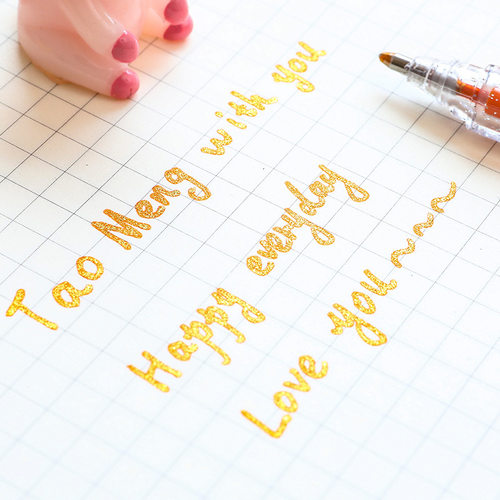 Tao Meng with you
Happy everyday
Love you~~~